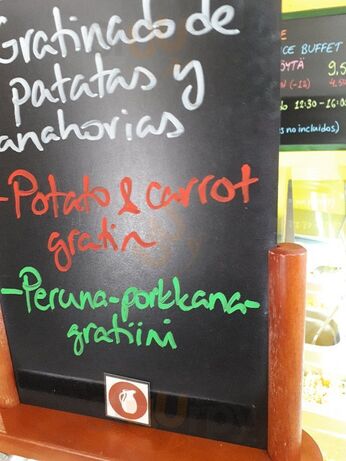 Gratinado de
patatas y
anahorias
-Potato & carrot
gratin
-Peruna-porkkana-
gratiini
ICE BUFFET
9,5
12:30-16:0
s no incluidos)